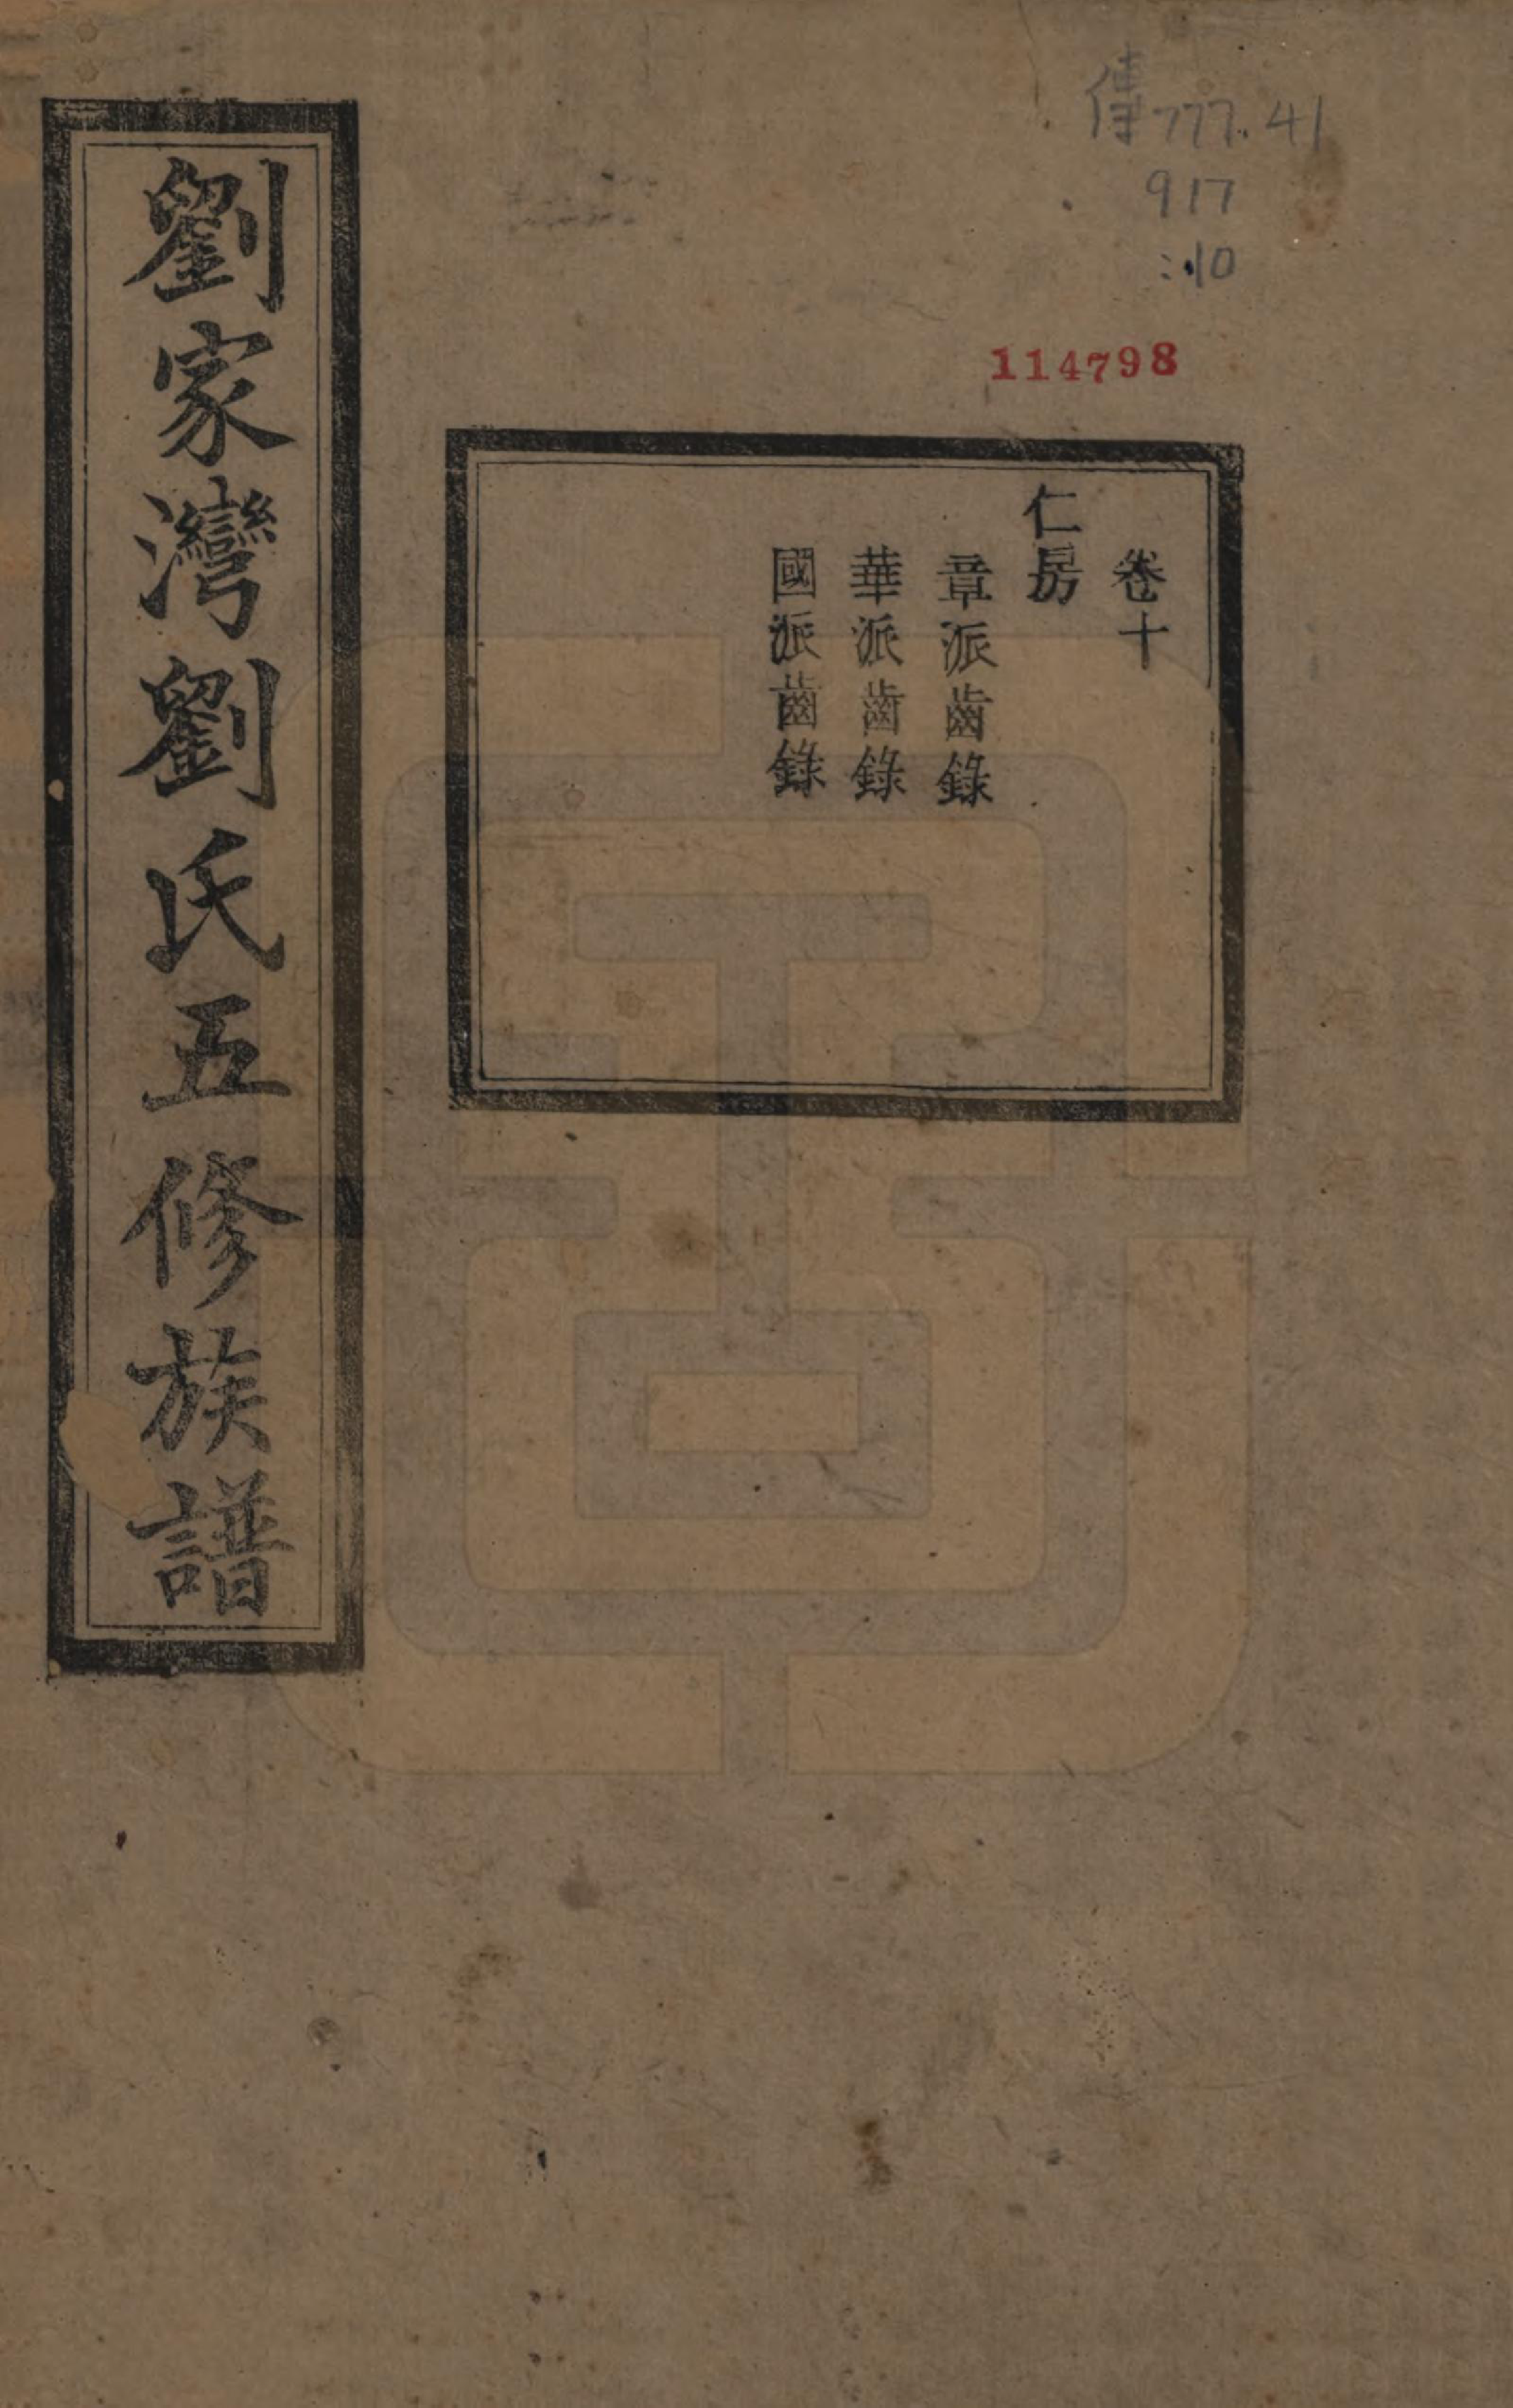 傳777.41
917
:10
114798
卷十
仁房
章派齒錄
華派齒錄
國派齒錄
劉家灣劉氏五修族譜